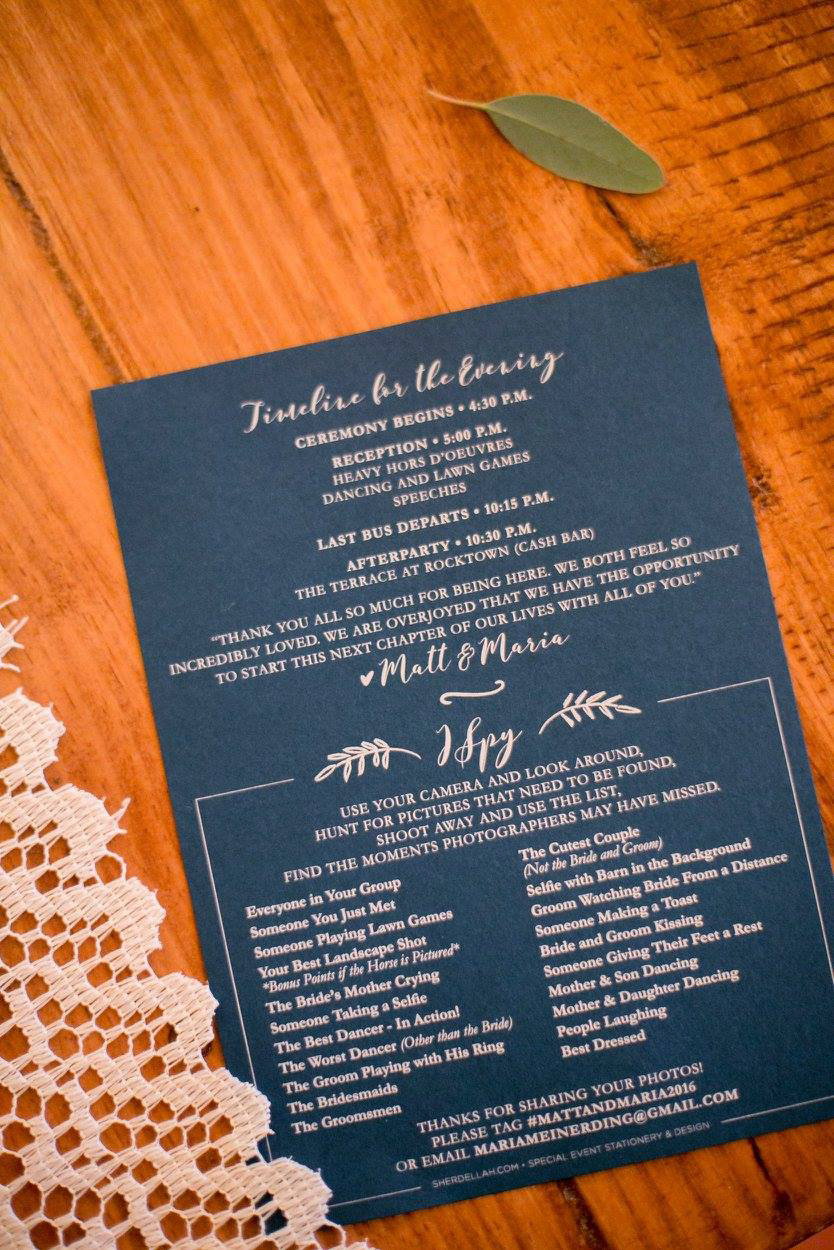 Timeline for the Evening
CEREMONY BEGINS • 4:30 P.M.
RECEPTION • 5:00 P.M.
HEAVY HORS D'OEUVRES
DANCING AND LAWN GAMES
SPEECHES
LAST BUS DEPARTS • 10:15 P.M.
AFTERPARTY • 10:30 P.M.
THE TERRACE AT ROCKTOWN (CASH BAR)
“THANK YOU ALL SO MUCH FOR BEING HERE. WE BOTH FEEL SO
INCREDIBLY LOVED. WE ARE OVERJOYED THAT WE HAVE THE OPPORTUNITY
TO START THIS NEXT CHAPTER OF OUR LIVES WITH ALL OF YOU.”
♥Matt & Maria
I Spy
USE YOUR CAMERA AND LOOK AROUND,
HUNT FOR PICTURES THAT NEED TO BE FOUND,
SHOOT AWAY AND USE THE LIST,
FIND THE MOMENTS PHOTOGRAPHERS MAY HAVE MISSED.
Everyone in Your Group
Someone You Just Met
Someone Playing Lawn Games
Your Best Landscape Shot
*Bonus Points if the Horse is Pictured*
The Bride's Mother Crying
Someone Taking a Selfie
The Best Dancer - In Action!
The Worst Dancer (Other than the Bride)
The Groom Playing with His Ring
The Bridesmaids
The Groomsmen
The Cutest Couple
(Not the Bride and Groom)
Selfie with Barn in the Background
Groom Watching Bride From a Distance
Someone Making a Toast
Bride and Groom Kissing
Someone Giving Their Feet a Rest
Mother & Son Dancing
Mother & Daughter Dancing
People Laughing
Best Dressed
THANKS FOR SHARING YOUR PHOTOS!
PLEASE TAG #MATTANDMARIA2016
OR EMAIL MARIAMEINERDING@GMAIL.COM
SHERDELLAH.COM • SPECIAL EVENT STATIONERY & DESIGN